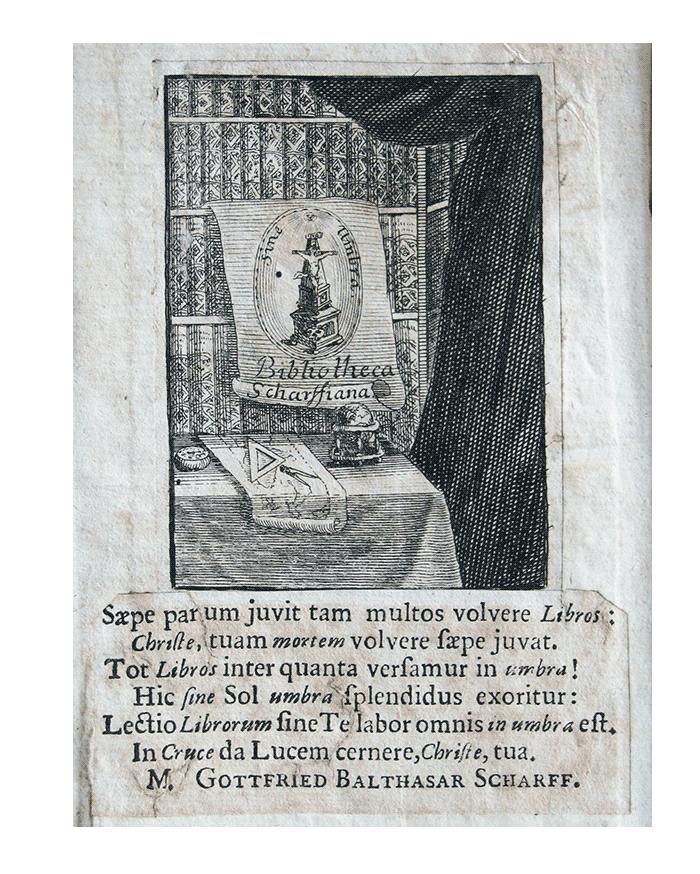 Sine Umbra.
Bibliotheca
Scharffiana
Sæpe parum juvit tam multos volvere Libros:
Chriſte, tuam mortem volvere ſæpe juvat.
Tot Libros inter quanta verſamur in umbra!
Hic ſine Sol umbra ſplendidus exoritur:
Lectio Librorum ſine Te labor omnis in umbra eſt.
In Cruce da Lucem cernere, Chriſte, tua.
M. GOTTFRIED BALTHASAR SCHARFF.